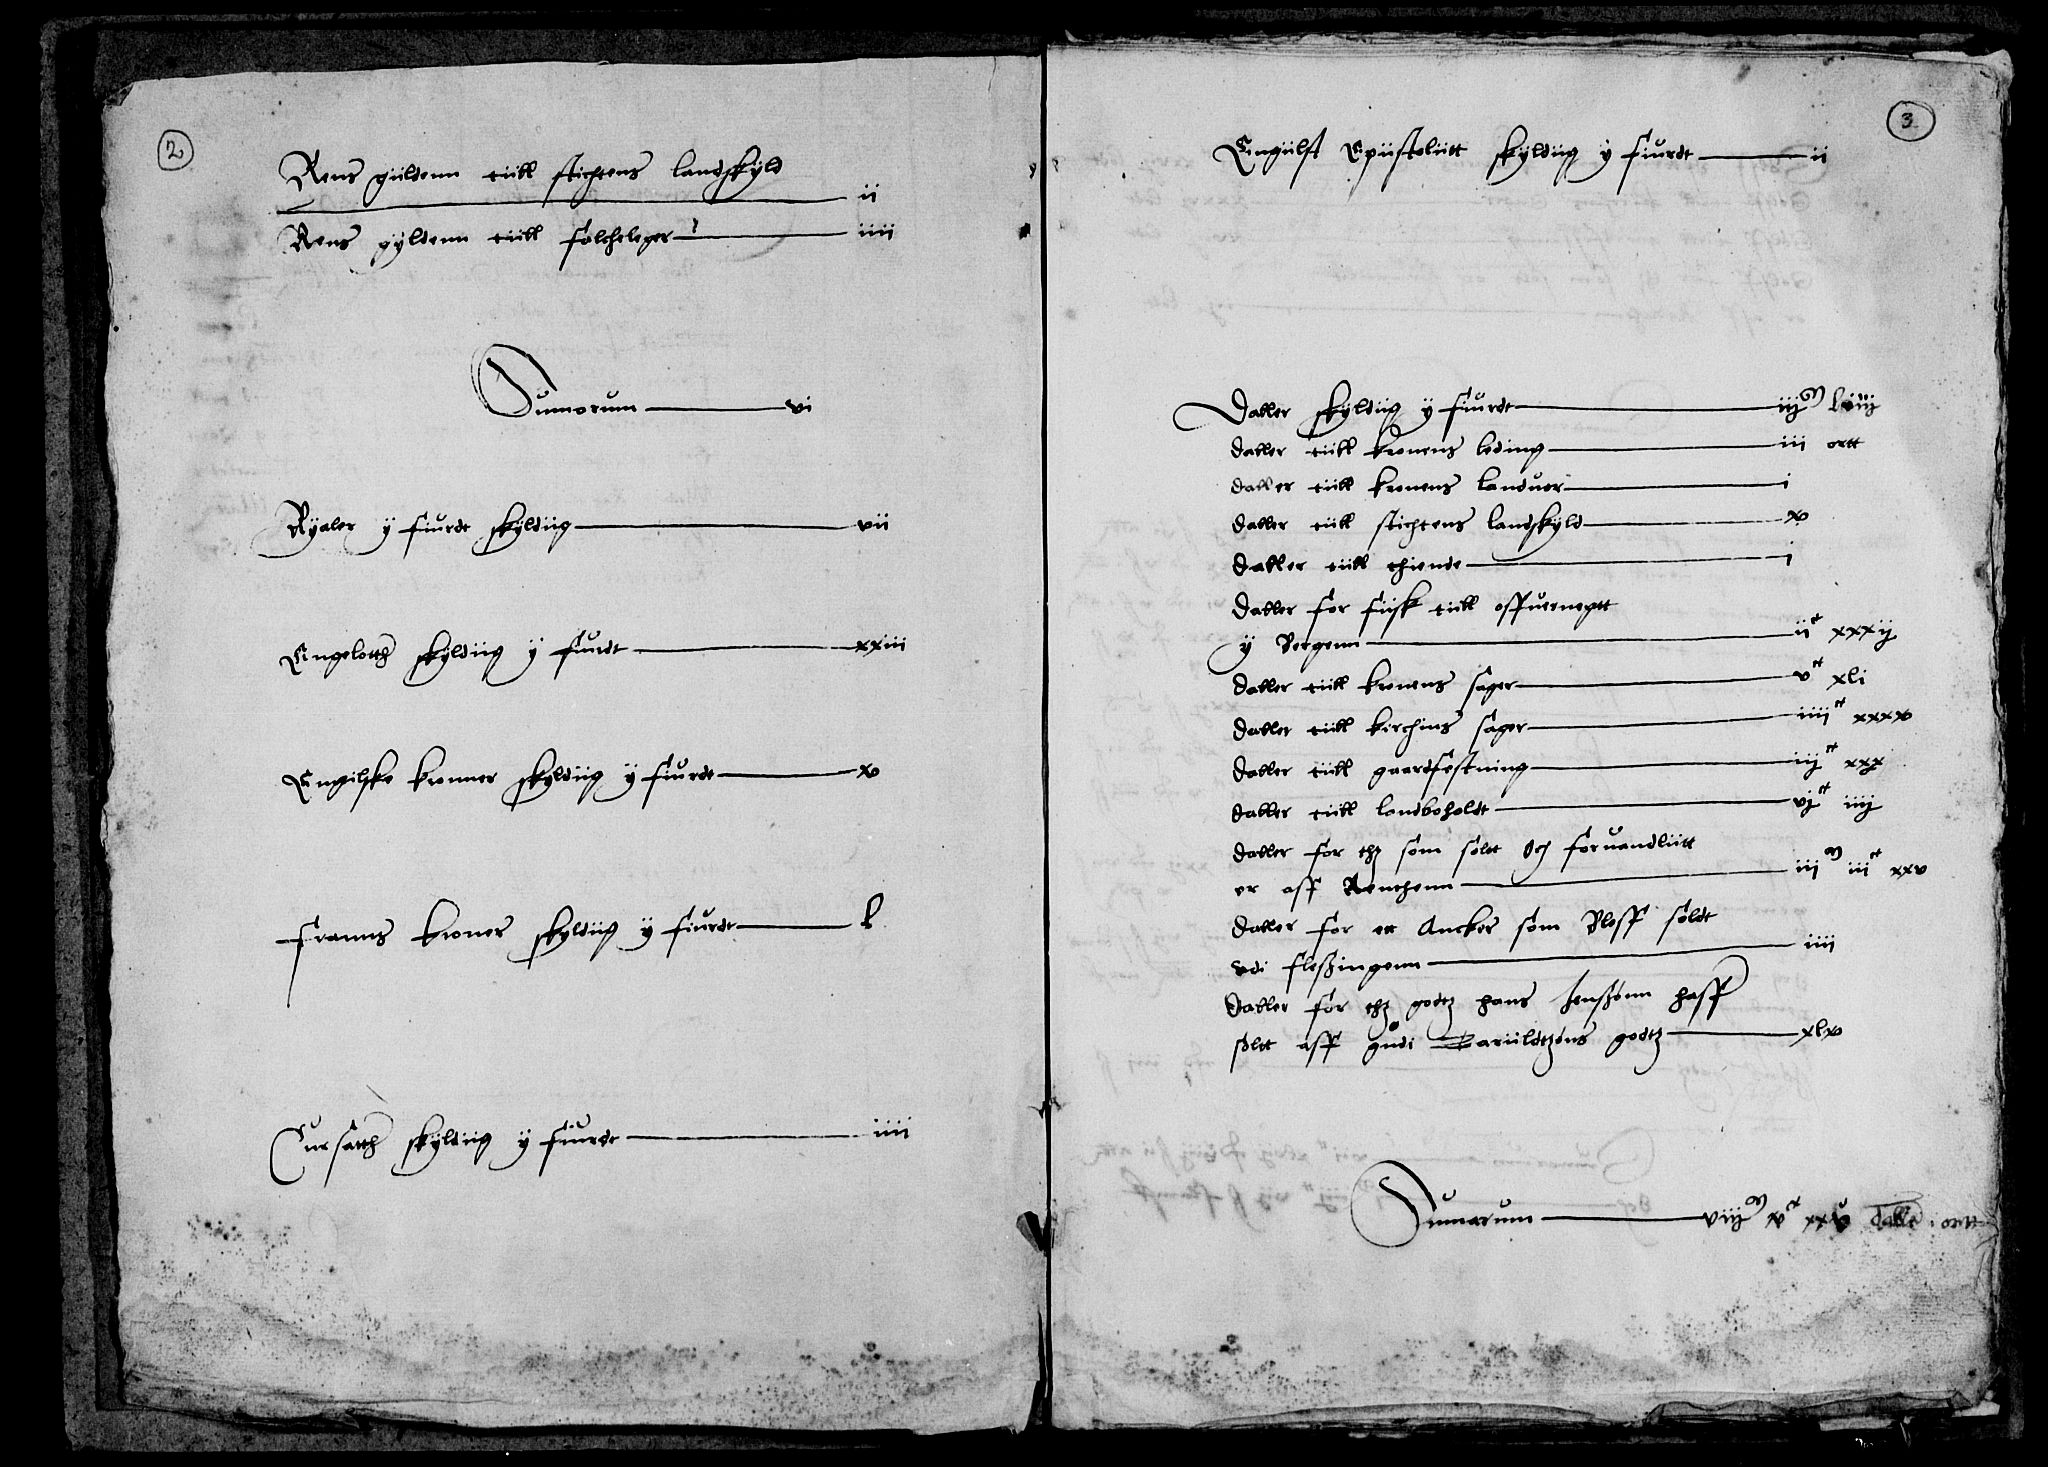 2
Rens güldenn tiill stichtens landskyld
ii
Rens gyldenn tiill folcheleger iiii
Sumorum vi
Ryaler ÿ fiurdt skyldiig vii
Engelotth skyldiig ÿ fiurdt xxiii
Engilske kronner skyldiig ÿ fiurdt x
Franns kroner skyldiig ÿ fiurdt l
Cursatth skyldiig ÿ fiurdt iiii
3
Engiilst Epiistoliitt skyldiig ÿ fiurdt ii
Daller skyldiig ÿ fiurdt iijM
daller tiill kronens leding iii ortt
daller tiill kronens landuer i
daller tiill stichtens landskyld x
daller tiill thiende i
daller for fiisk tiill offuernegtt
ÿ Bergenn iict xxxij
daller tiill kronens sager vct xli
daller tiill kirchins sager iiiict xxxx
daller tiill gaardfestning iijct xxx
daller tiill landboholdt vjct iiij
daller for thz som soltt och foruandliitt
er aff Renthenn iiiM iiict xxv
daller for et Ancker som Bleff soldt
vdi flessingenn iiii
daller for thz godtz hans Jenssonn haff
soltt aff gudi godtz xlv
Sumarum viijM vct xxv dalle i ortt